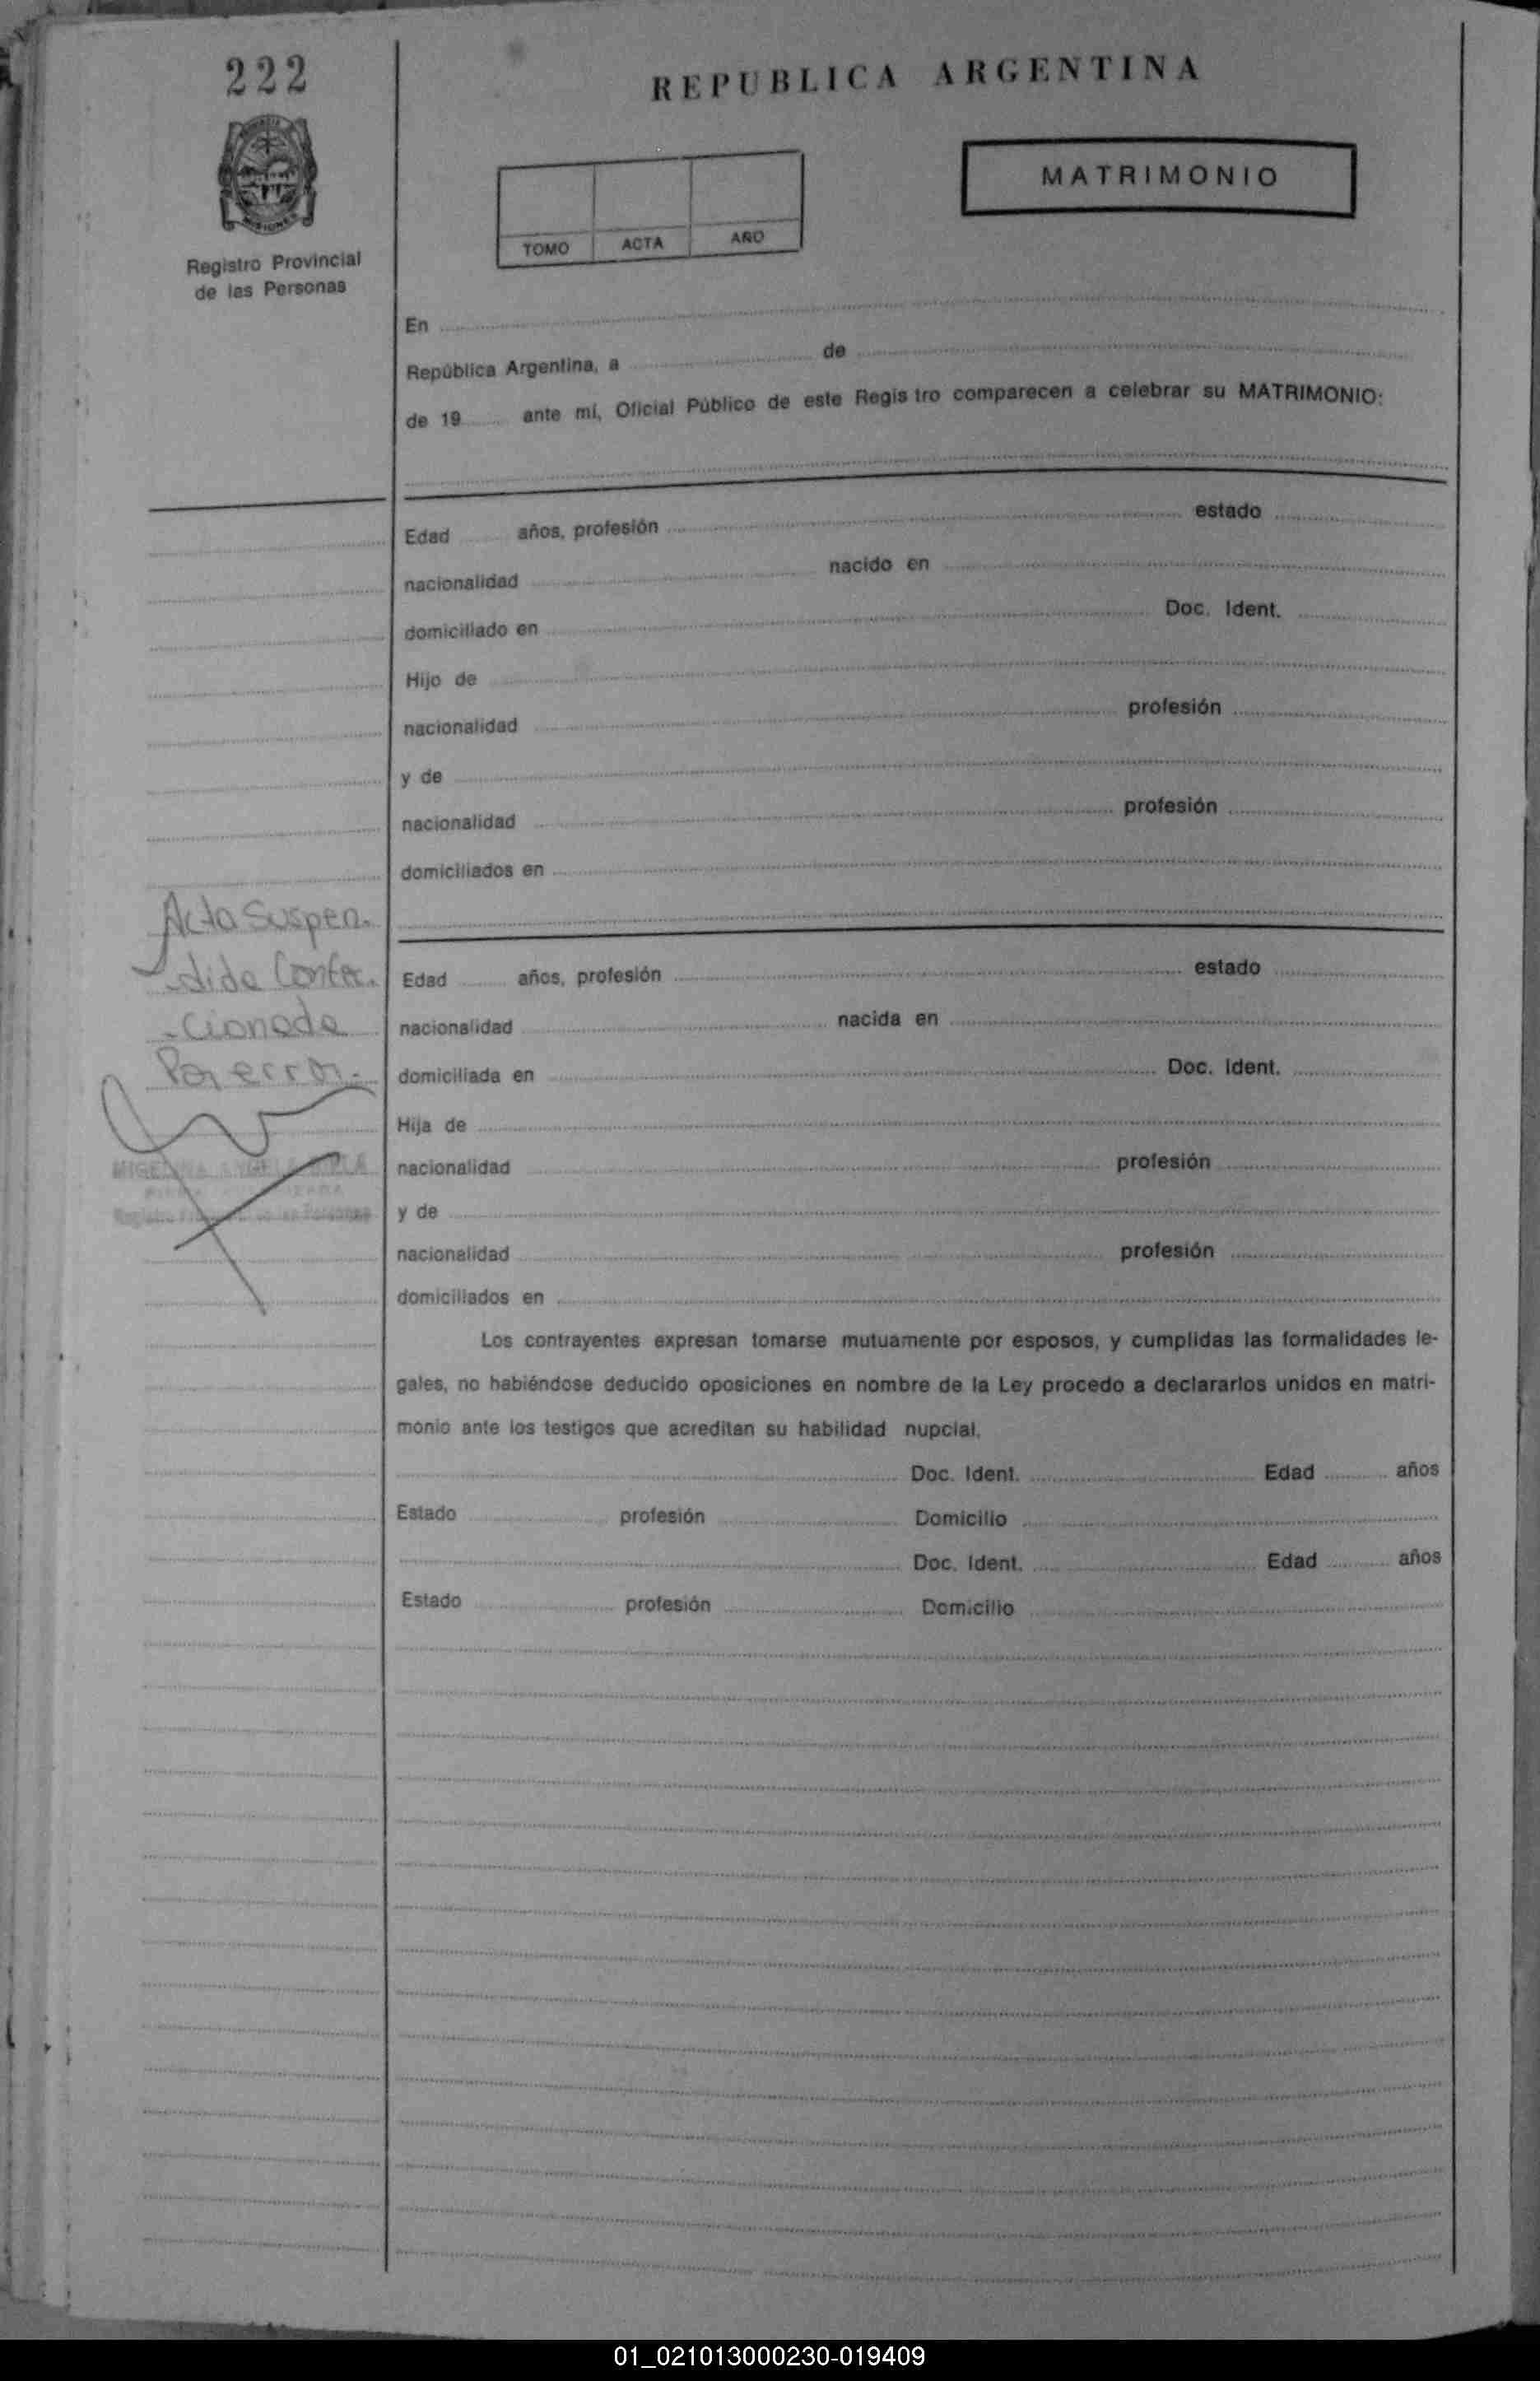 222
REPUBLICA ARGENTINA
MISIONES
Registro Provincial
de las Personas
TOMO ACTA AÑO
MATRIMONIO
En
República Argentina, a de
de 19 ante mí, Oficial Público de este Regis tro comparecen a celebrar su MATRIMONIO:
Edad años, profesión estado
nacionalidad nacido en
domiciliado en Doc. Ident.
Hijo de
nacionalidad profesión
y de
nacionalidad profesión
domiciliados en
Acta Suspen.
-dida Confec.
-cionada
Por error.-
Edad años, profesión estado
nacionalidad nacida en
domiciliada en Doc. Ident.
Hija de
nacionalidad profesión
y de
nacionalidad profesión
domiciliados en
Los contrayentes expresan tomarse mutuamente por esposos, y cumplidas las formalidades le-
gales, no habiéndose deducido oposiciones en nombre de la Ley procedo a declararlos unidos en matri-
monio ante los testigos que acreditan su habilidad nupcial.
Doc. Ident. Edad años
Estado profesión Domicilio
Doc. Ident. Edad años
Estado profesión Domicilio
01_021013000230-019409